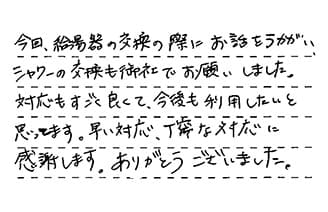 今回、給湯器の交換の際にお話をうかがい、
シャワーの交換も御社でお願いしました。
対応もすごく良くて、今後も利用したいと
思ってます。早い対応、丁寧な対応に
感謝します。ありがとうございました。